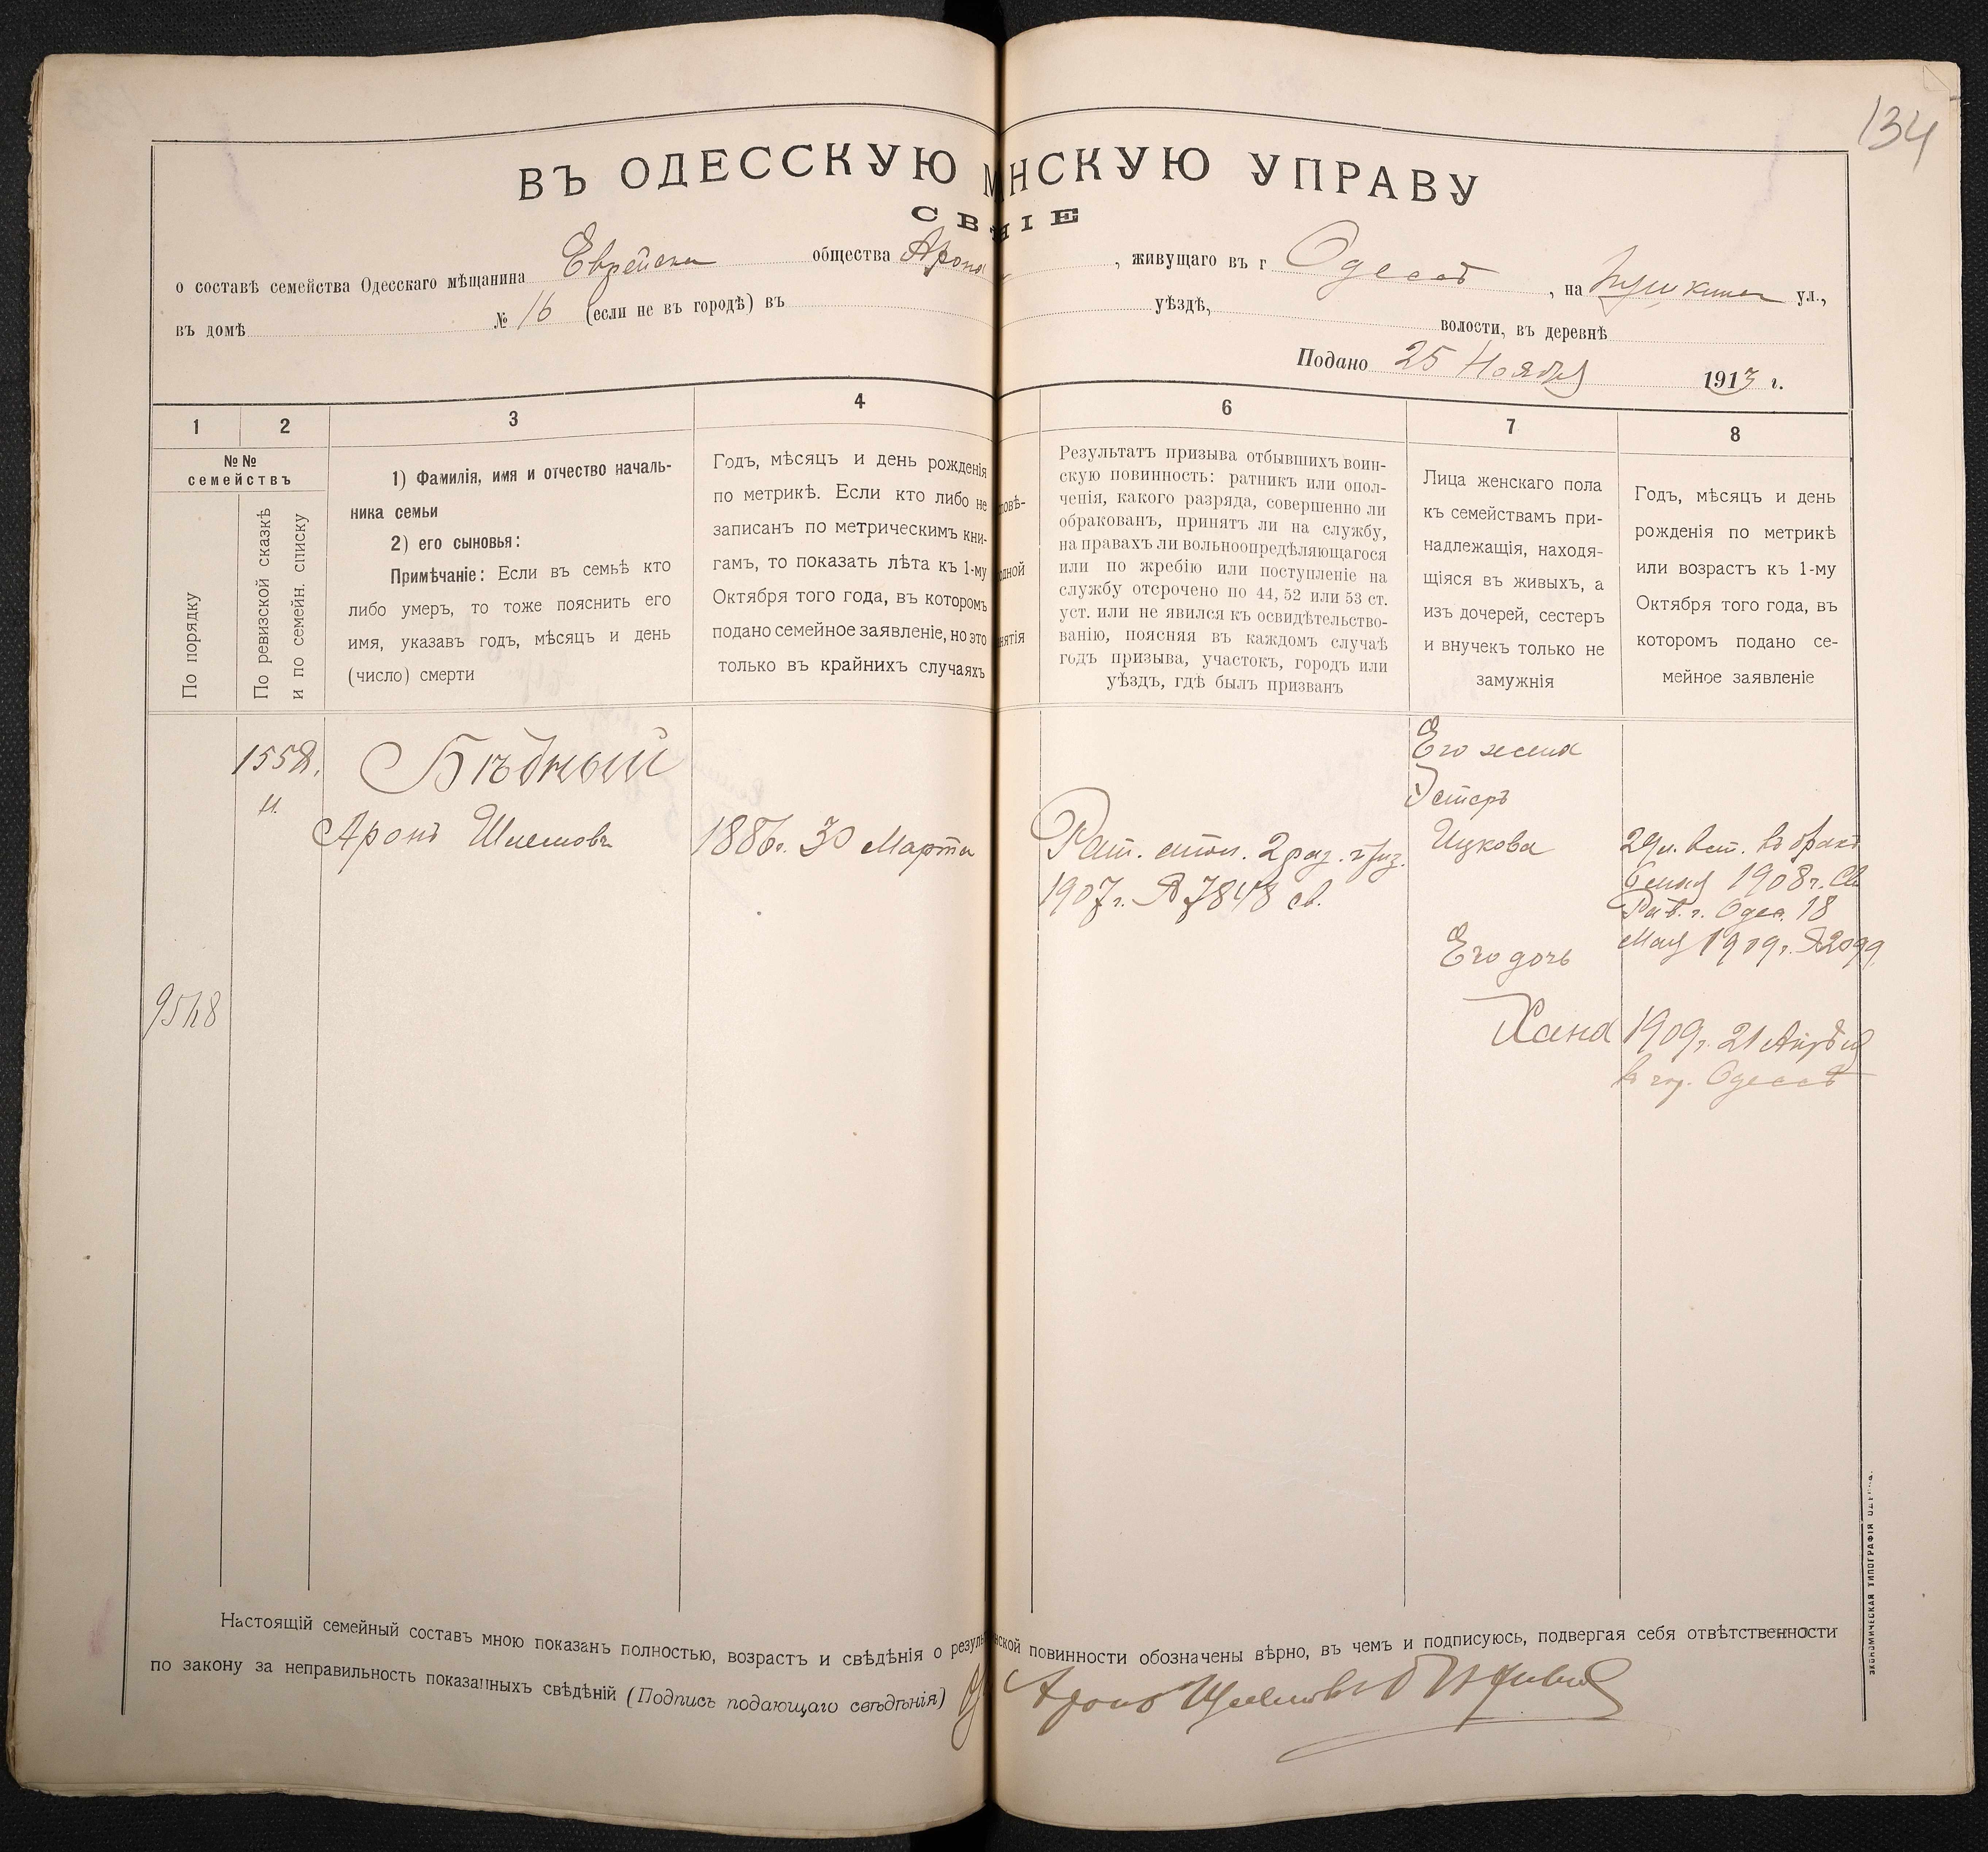 134
ВЪ ОДЕССКУЮ МНСКУЮ УПРАВУ
СВНІЕ
о составѣ семейства Одесскаго мѣщанина Еврейска общества Арона , живущаго въ г Одессѣ , на Пушкинс ул.,
въ домѣ № 16 (если не въ городѣ) въ уѣздѣ, волости, въ деревнѣ
Подано 25 Ноября 1913 г.
1
2
3
4
6
7
8
№№
семействъ
По порядку
По ревизской сказкѣ
и по семейн. списку
1) Фамилія, имя и отчество началь-
ника семьи
2) его сыновья:
Примѣчаніе: Если въ семьѣ кто
либо умеръ, то тоже пояснить его
имя, указавъ годъ, мѣсяцъ и день
(число) смерти
Годъ, мѣсяцъ и день рожденія
по метрикѣ. Если кто либо не
записанъ по метрическимъ кни-
гамъ, то показать лѣта къ 1-му
Октября того года, въ которомъ
подано семейное заявленіе, но это
только въ крайнихъ случаяхъ
повѣ-
одной
нятія
Результатъ призыва отбывшихъ воин-
скую повинность: ратникъ или опол-
ченія, какого разряда, совершенно ли
обракованъ, принятъ ли на службу,
на правахъ ли вольноопредѣляющагося
или по жребію или поступленіе на
службу отсрочено по 44, 52 или 53 ст.
уст. или не явился къ освидѣтельство-
ванію, поясняя въ каждомъ случаѣ
годъ призыва, участокъ, городъ или
уѣздъ, гдѣ былъ призванъ
Лица женскаго пола
къ семействамъ при-
надлежащія, находя-
щіяся въ живыхъ, а
изъ дочерей, сестеръ
и внучекъ только не
замужнія
Годъ, мѣсяцъ и день
рожденія по метрикѣ
или возрастъ къ 1-му
Октября того года, въ
которомъ подано се-
мейное заявленіе
Бѣдный
Аронъ Шлемовъ
1886г. 30 Марта
Рат. опол. 2 раз. приз.
1907г. № 7848 св.
Его жена
Эстеръ
Ицкова
Его дочь
Хана
29л. вст. въ бракъ
1908г. Св.
Рав. г. Одес. 18
Мая 1909г. №2099
1909г. 21 Апрѣля
въ гор. Одессѣ
9548
Настоящій семейный составъ мною показанъ полностью, возрастъ и свѣдѣнія о резуль нской повинности обозначены вѣрно, въ чемъ и подписуюсь, подвергая себя отвѣтственности
по закону за неправильность показанныхъ свѣдѣній (Подпись подающаго свѣдѣнія) Аронъ Шлемовъ Бѣдный
ЭКОНОМИЧЕСКАЯ ТИПОГРАФІЯ